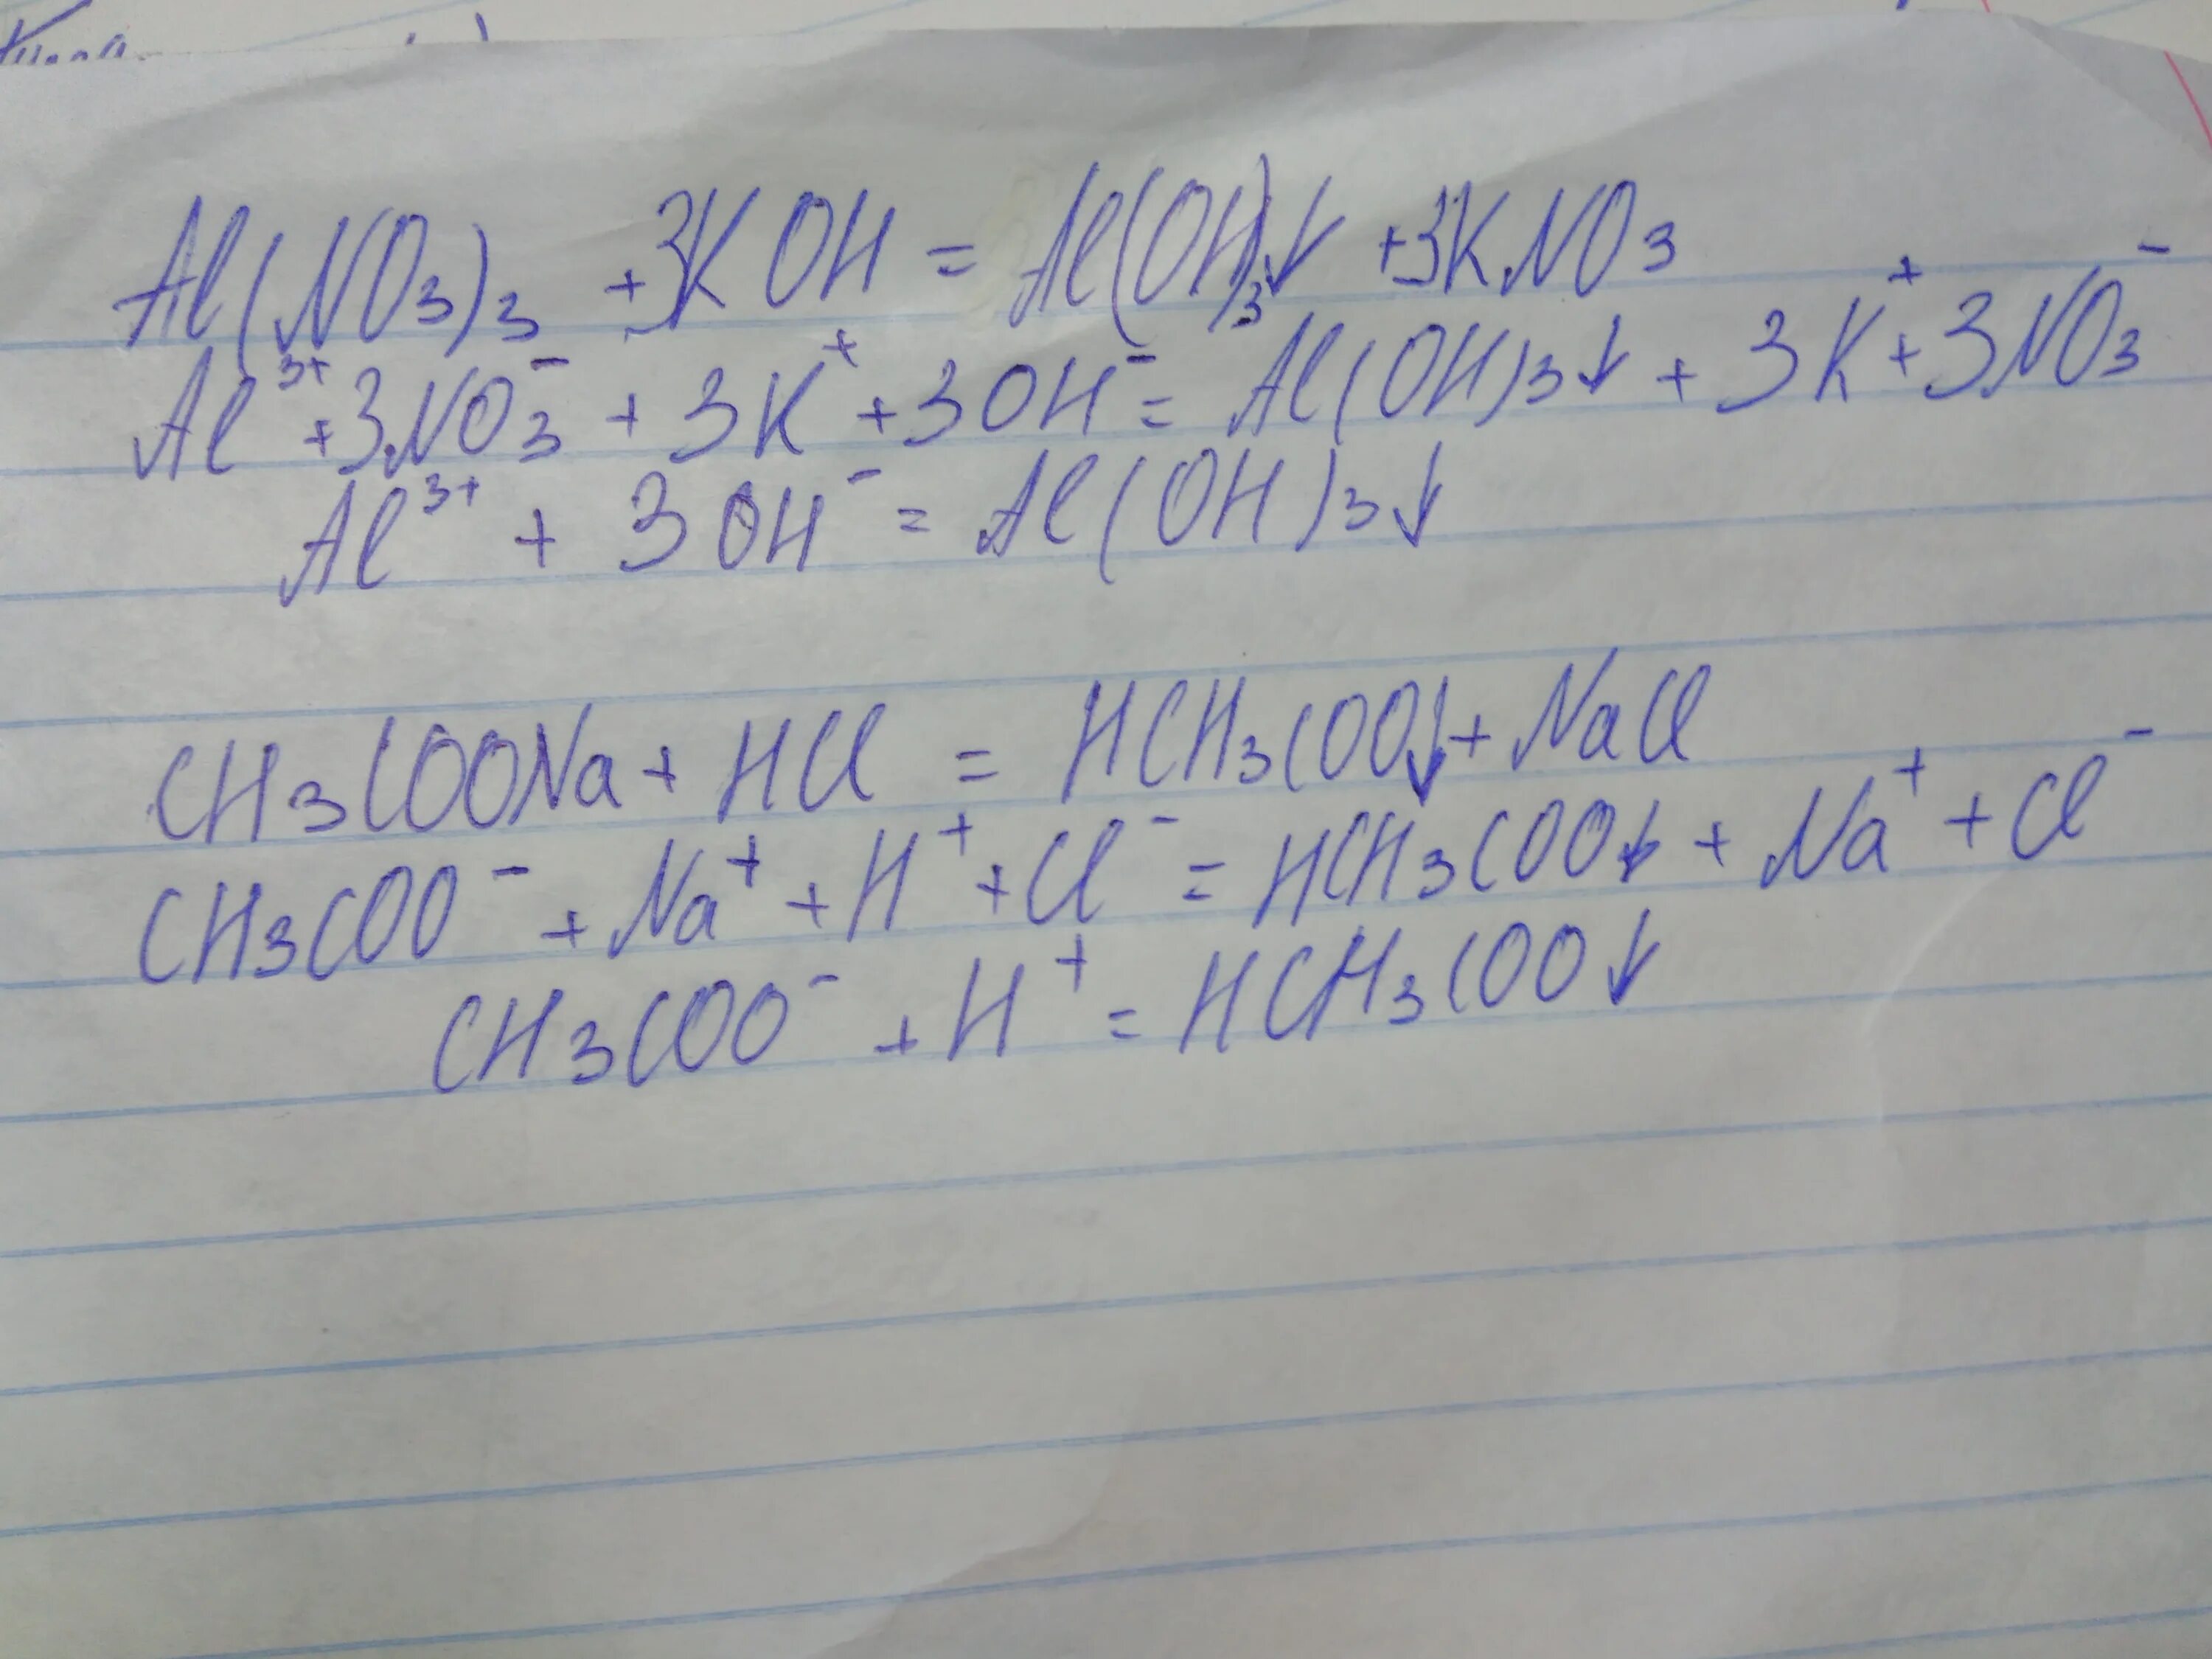 Al(NO₃)₃ +3KOH = Al(OH)₃↓ +3KNO₃
Al³⁺+3NO₃⁻ + 3K⁺+3OH⁻= Al(OH)₃↓ + 3K⁺+3NO₃⁻
Al³⁺ + 3OH⁻ = Al(OH)₃↓
CH₃COONa + HCl = HCH₃COO↓+ NaCl
CH₃COO⁻ + Na⁺ + H⁺ + Cl⁻ = HCH₃COO↓ + Na⁺ + Cl⁻
CH₃COO⁻ + H⁺ = HCH₃COO↓